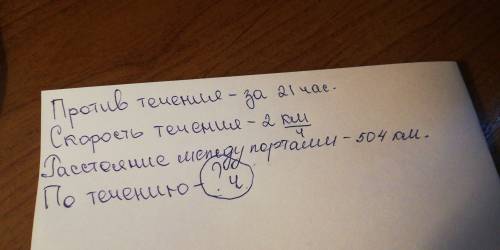 Против течения - за 21 час.
Скорость течения - 2 км/ч
Расстояние между портами - 504 км.
По течению - ? ч